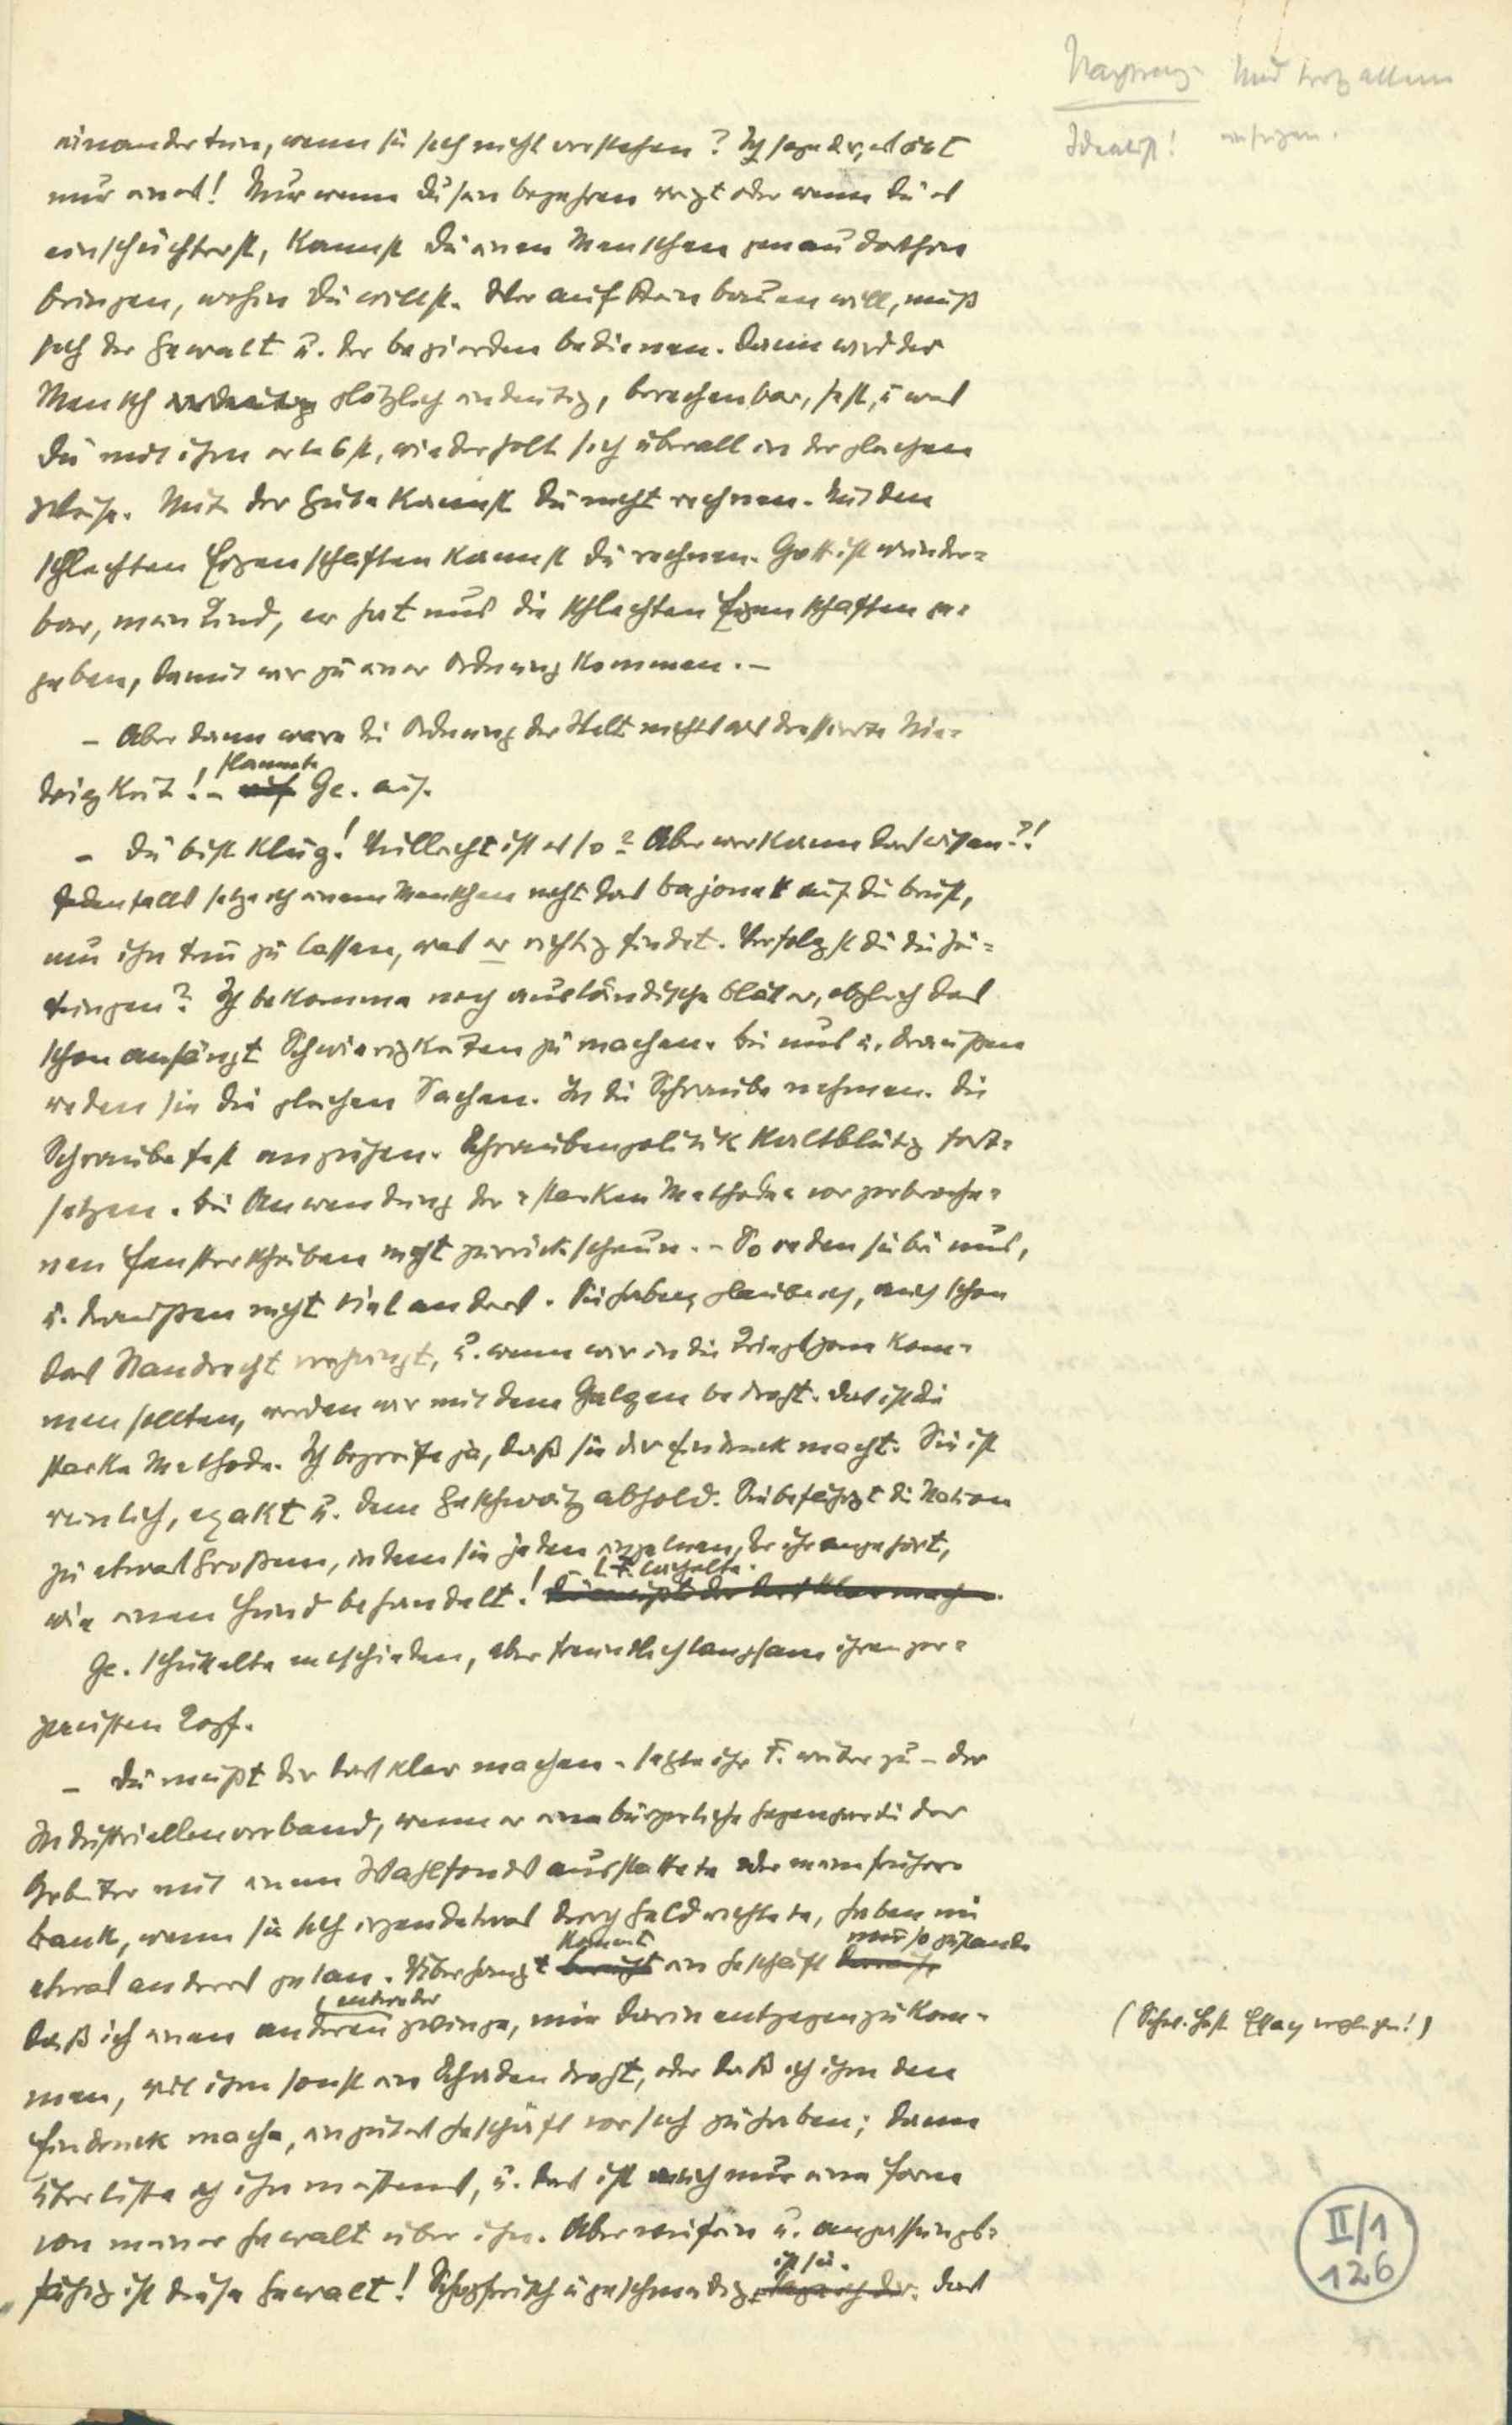 Nachtrag: Und trotz allem
Idealist! einfügen.
einander tun, wenn sie sich nicht verstehen? Ich sage dir, es gibt
nur eines! Nur wenn du sein begehren reizt oder wenn du es
einschüchterst, kannst du einen Menschen genau dorthin
bringen, wohin du willst. Wer auf Stein bauen will, muß
sich der Gewalt u. der begierden bedienen. Dann wird der
Mensch eindeutig plötzlich eindeutig, berechenbar, fest, u was
du mit ihm erlebst, wiederholt sich überall in der gleichen
Weise. Mit der Güte kannst du nicht rechnen. Mit den
schlechten Eigenschaften kannst du rechnen. Gott ist wunder=
bar, mein Kind, er hat uns die schlechten Eigenschaften ge=
geben, damit wir zu einer Ordnung kommen. –
– Aber dann wäre die Ordnung der Welt nichts als dressierte Nie=
drigkeit! – rief flammte Ge. auf.
– Du bist klug! Vielleicht ist es so? Aber wer kann das wissen?!
Jedenfalls setze ich einem Menschen nicht das bajonett auf die brust,
um ihn tun zu lassen, was er richtig findet. Verfolgst du die Zei=
tungen? Ich bekomme noch ausländische blätter, obgleich das
schon anfängt Schwierigkeiten zu machen. bei uns u. draußen
reden sie die gleichen Sachen. In die Schraube nehmen. Die
Schraube fest anziehen. Schraubenpolitik kaltblütig fort=
setzen. bei Anwendung der »starken Methode« vor zerbroche=
nen fensterscheiben nicht zurückscheun. – So reden sie bei uns,
u. draußen nicht viel anders. Sie haben, glaube ich, auch schon
das Standrecht verhängt, u. wenn wir in die Kriegszone kom=
men sollten, werden wir mit dem Galgen bedroht. Das ist die
starke Methode. Ich begreife ja, daß sie dir Eindruck macht. Sie ist
reinlich, exakt u. dem Geschwätz abhold. Sie befähigt die Nation
zu etwas Großem, indem sie jeden einzelnen, der ihr angehört,
wie einen Hund behandelt! – L. F. lächelte. Du mußt dir das klar machen.
Ge. schüttelte entschieden, aber freundlich langsam ihren zer=
zausten Kopf.
– Du mußt dir das klar machen – sagte ihr F. weiter zu – der
Industriellenverband, wenn er eine bürgerliche Gegenpartei der
Arbeiter mit einem Wahlfonds ausstattete oder meine frühere
bank, wenn sie sich irgendetwas durch Geld richtete, haben nie
etwas anderes getan. Überhaupt beruht kommt ein Geschäft darauf, nur so zustande
daß ich einen anderen entweder zwinge, mir darin entgegenzukom=
men, weil ihm sonst ein Schaden droht, oder daß ich ihm den
Eindruck mache, ein gutes Geschäft vor sich zu haben; dann
überliste ich ihn meistens, u. das ist auch nur eine form
(Schw. Heft Essay vergleichen!)
von meiner Gewalt über ihn. Aber wie fein u. anpassungs=
fähig ist diese Gewalt! Schöpferisch u geschmeidig, sage ich dir. ist sie. Das
II/1
126